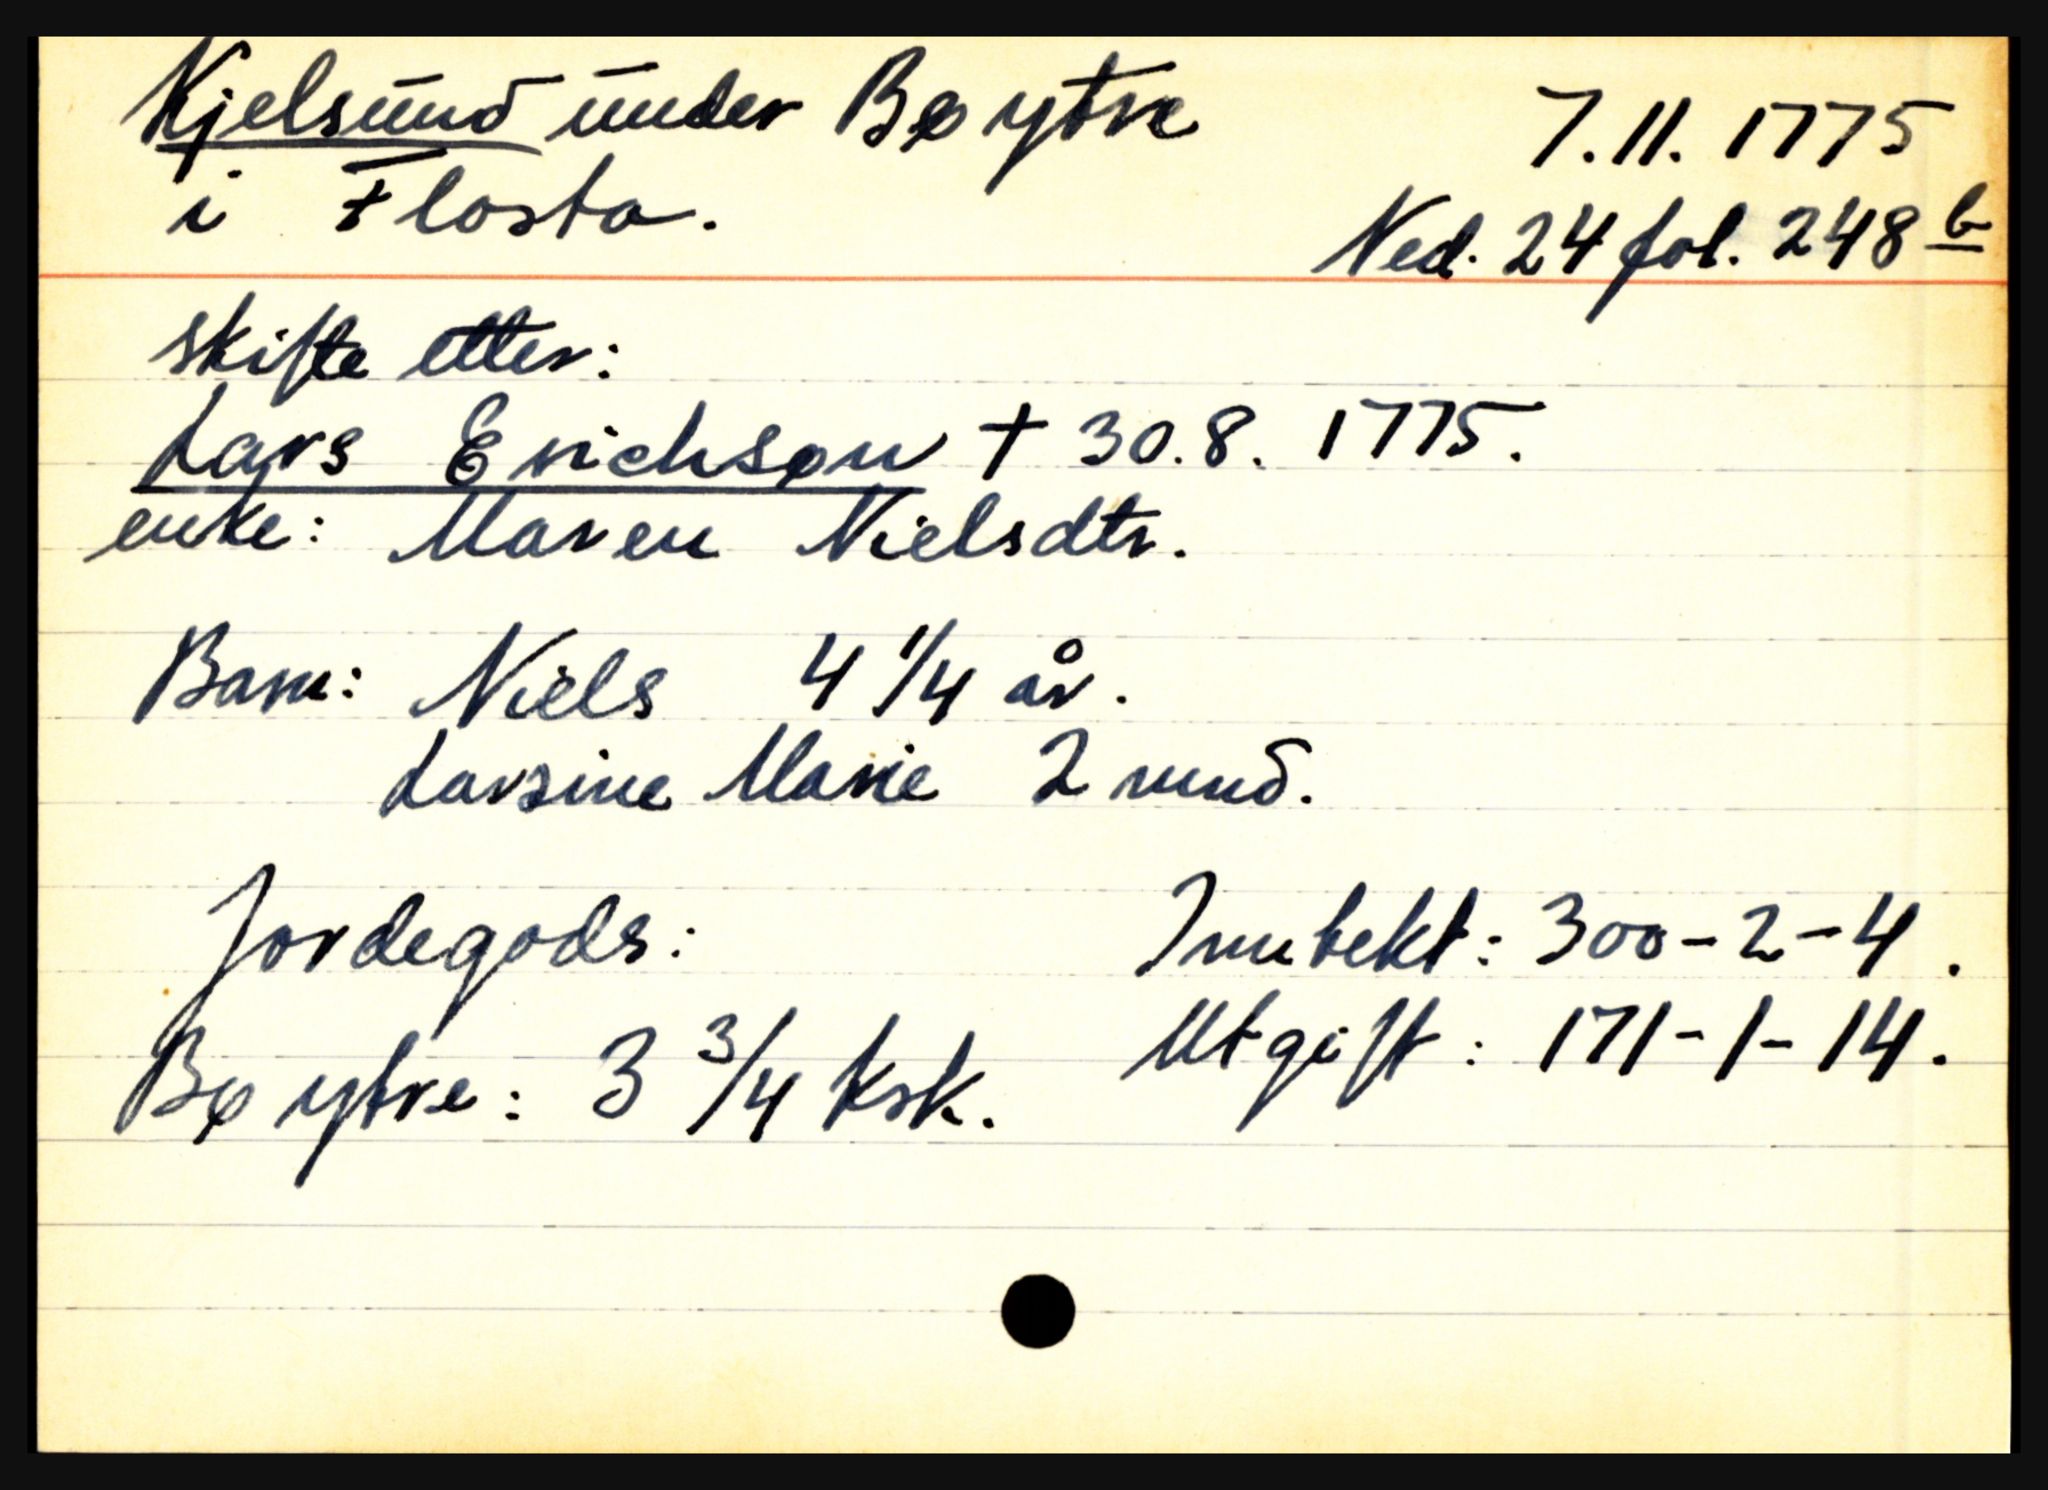 Kjelsund under Bø ytre
7.11.1775
i Flosta.
Ned. 24 fol. 248 b
skifte etter:
Lars Erichsøn † 30.8.1775.
enke: Maren Nielsdtr.
Barn: Niels 4 1/4 år.
Larsine Marie 2 mnd.
Jordegods:
Inntekt: 300-2-4.
Utgift: 171-1-14.
Bø ytre: 3 3/4 ksk.